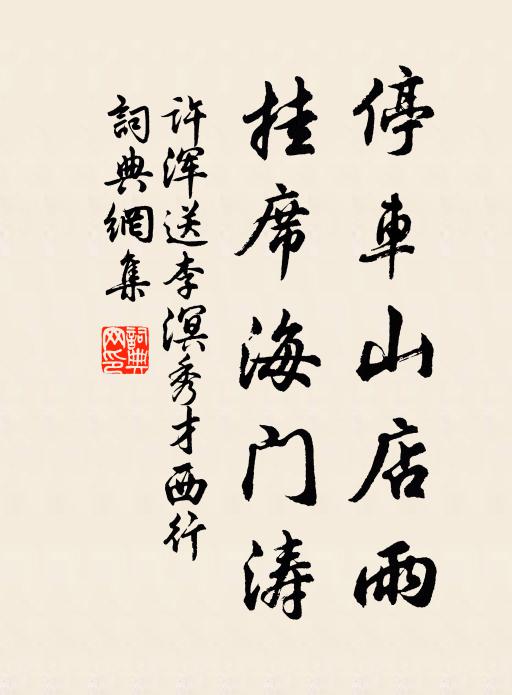 停車山店雨
挂席海门涛
许浑送李溟秀才西行
詞典網集
詞典网印